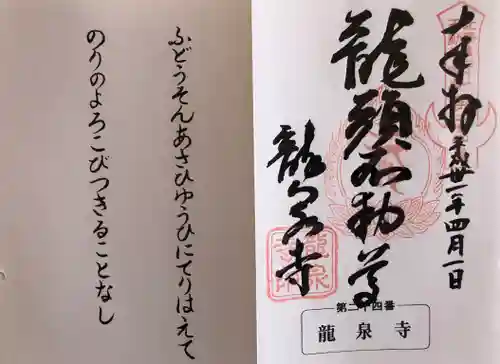 奉拝
平成丗一年四月一日
龍頭不動尊
龍泉寺
第二十四番
龍泉寺
ふどうそんあさひゆうひにてりはえて
のりのよろこびつきることなし